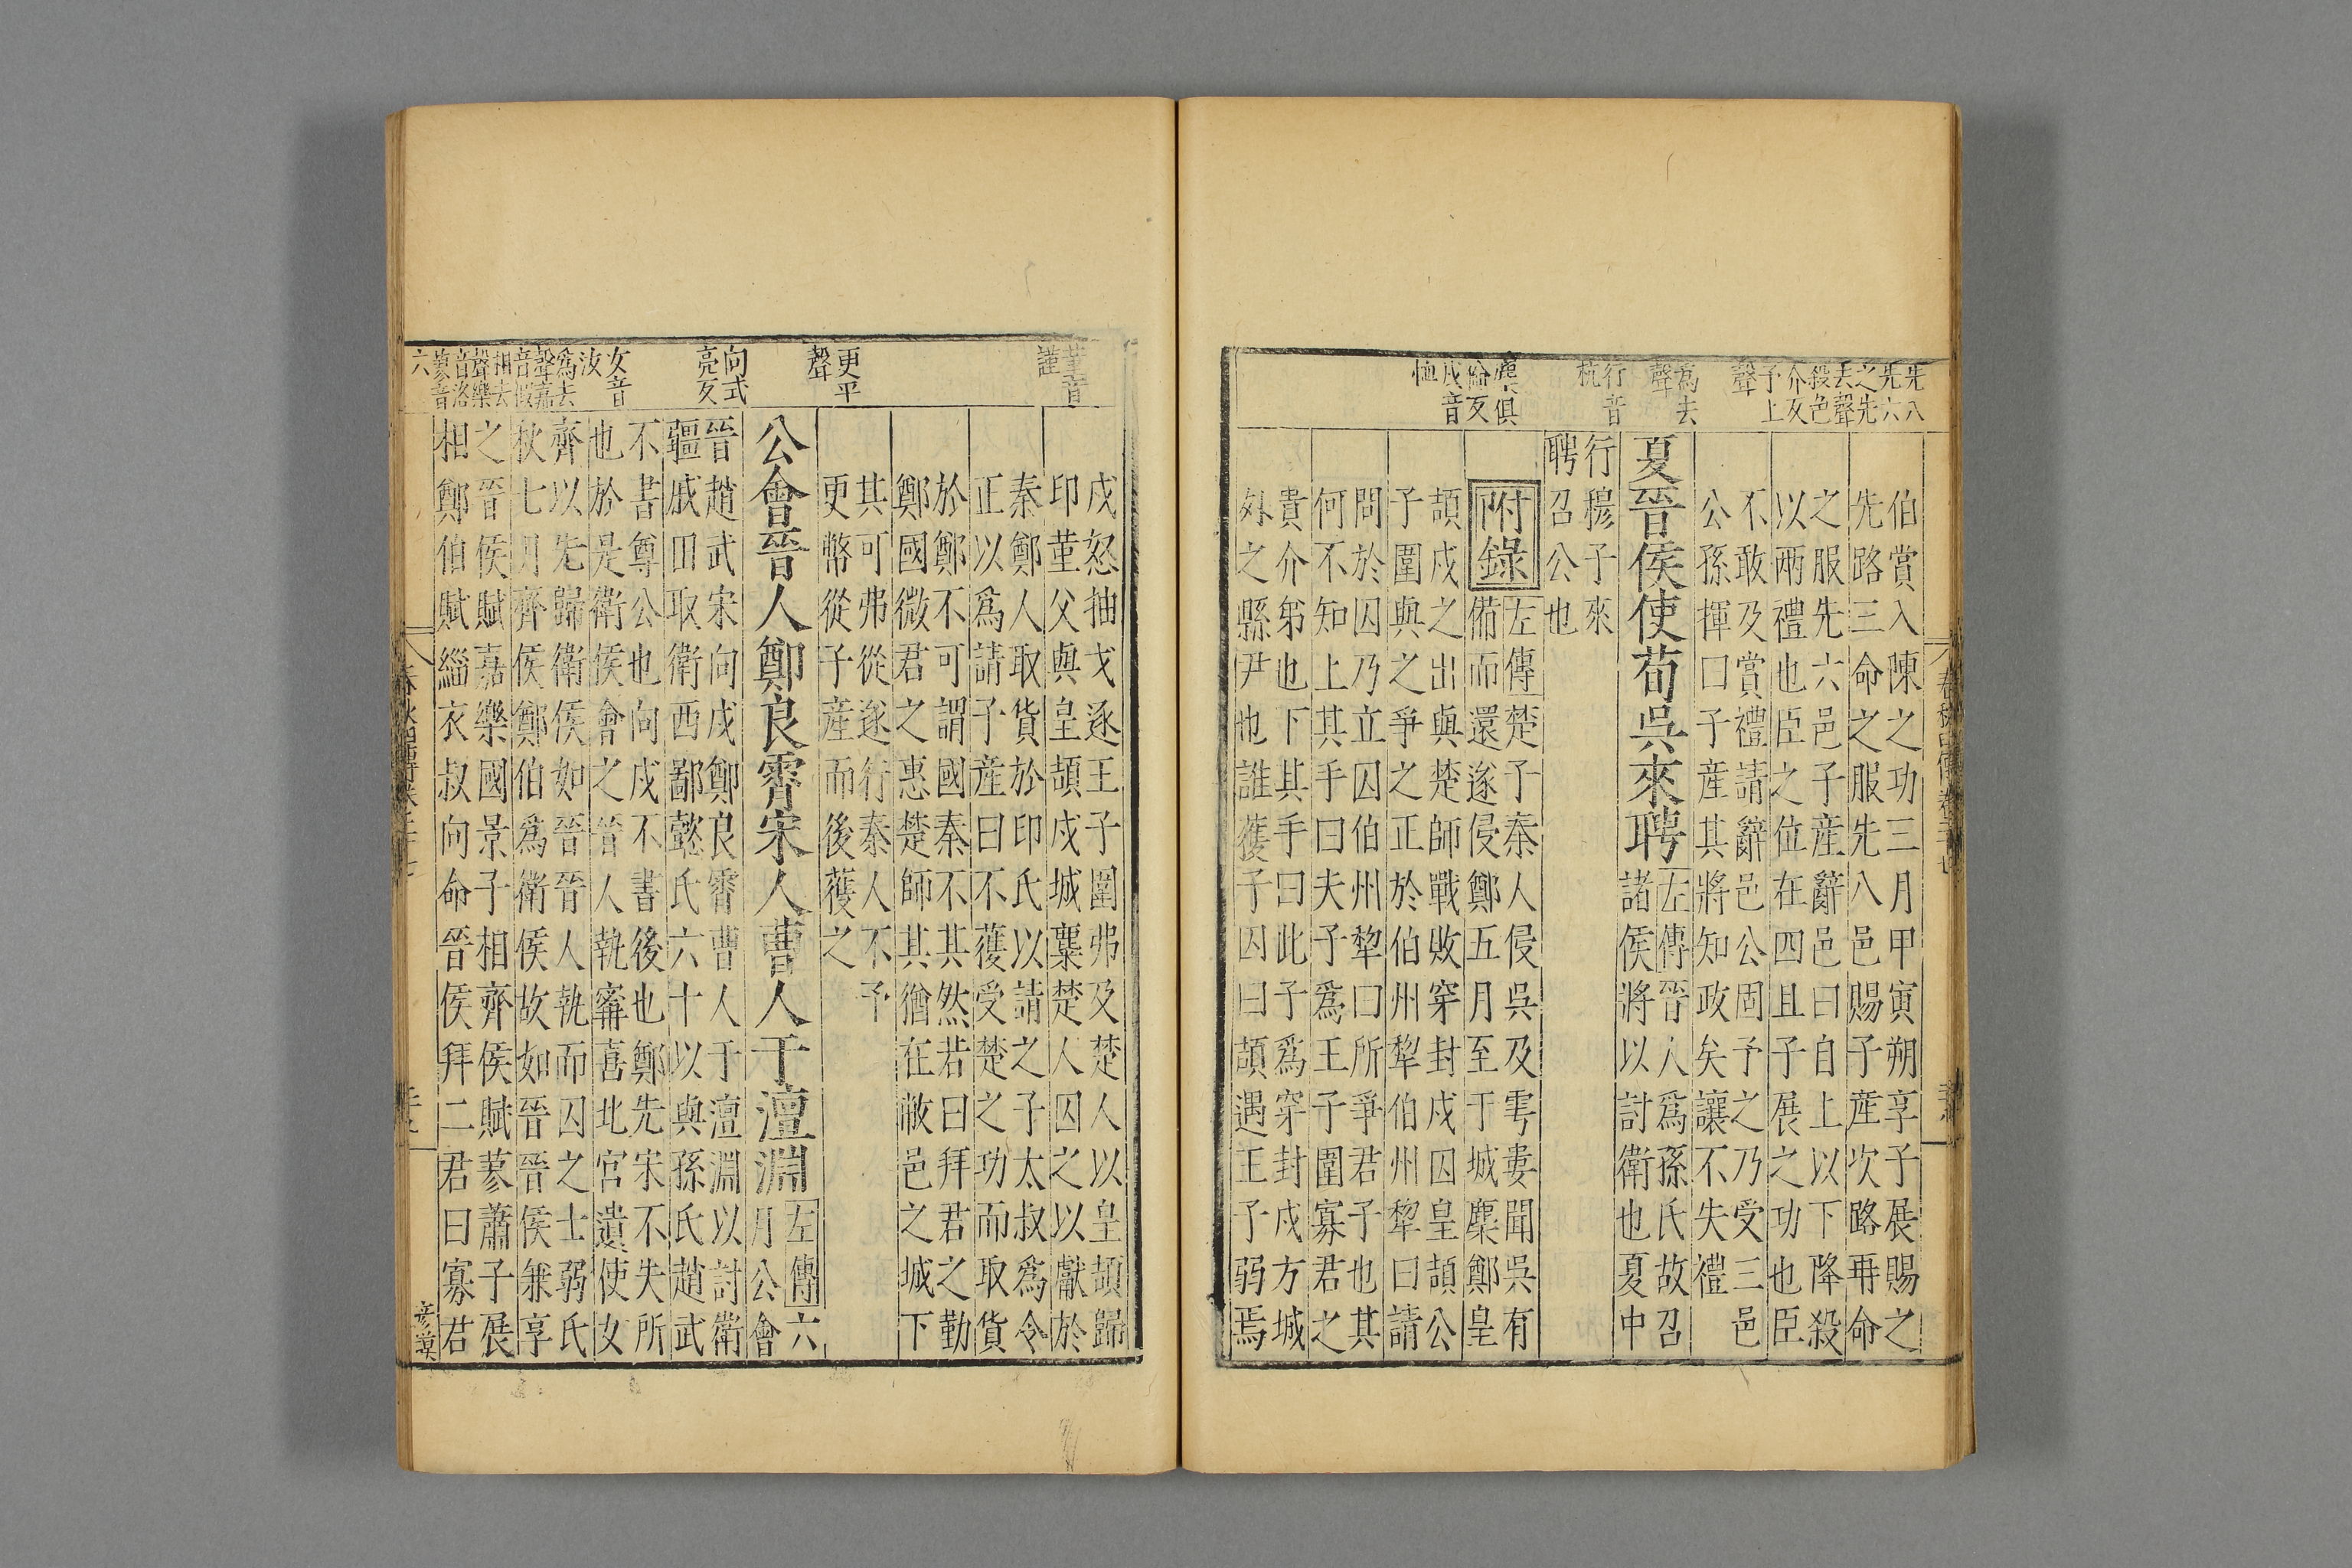 先八
先六
之先
去聲
殺色
介反
予上
聲
為去
聲
行音
杭
麇俱
倫反
戌音
恤
伯賞入陳之功三月甲寅朔享子展賜之
先路三命之服先八邑賜子產次路再命
之服先六邑子產辭邑曰自上以下降殺
以兩禮也臣之位在四且子展之功也臣
不敢及賞禮請辭邑公固予之乃受三邑
公孫揮曰子產其將知政矣讓不失禮
夏晉侯使荀吳來聘
左傳晉人為孫氏故召
諸侯將以討衛也夏中
行穆子來
聘召公也
附錄
左傳楚子秦人侵吳及雩婁聞吳有
備而還遂侵鄭五月至于城麇鄭皇
頡戌之出與楚師戰敗穿封戌囚皇頡公
子圍與之爭之正於伯州犂伯州犂曰請
問於囚乃立囚伯州犂曰所爭君子也其
何不知上其手曰夫子為王子圍寡君之
貴介弟也下其手曰此子為穿封戌方城
外之縣尹也誰獲子囚曰頡遇王子弱焉
董音
謹
更平
聲
向式
亮反
女音
汝
為去
聲嘉
音假
相去
聲樂
音洛
蓼音
六
戌怒抽戈逐王子圍弗及楚人以皇頡歸
印菫父與皇頡戌城麇楚人囚之以獻於
秦鄭人取貨於印氏以請之子太叔為令
正以為請子產曰不獲受楚之功而取貨
於鄭不可謂國秦不其然若曰拜君之勤
鄭國微君之惠楚師其猶在敝邑之城下
其可弗從遂行秦人不予
更幣從子產而後獲之
公會晉人鄭良霄宋人曹人于澶淵
左傳六
月公會
晉趙武宋向戌鄭良霄曹人于澶淵以討衛
疆戚田取衛西鄙懿氏六十以與孫氏趙武
不書尊公也向戌不書後也鄭先宋不失所
也於是衛侯會之晉人執甯喜北宮遺使女
齊以先歸衛侯如晉晉人執而囚之士弱氏
秋七月齊侯鄭伯為衛侯故如晉晉侯兼享
之晉侯賦嘉樂國景子相齊侯賦蓼蕭子展
相鄭伯賦緇衣叔向命晉侯拜二君曰寡君